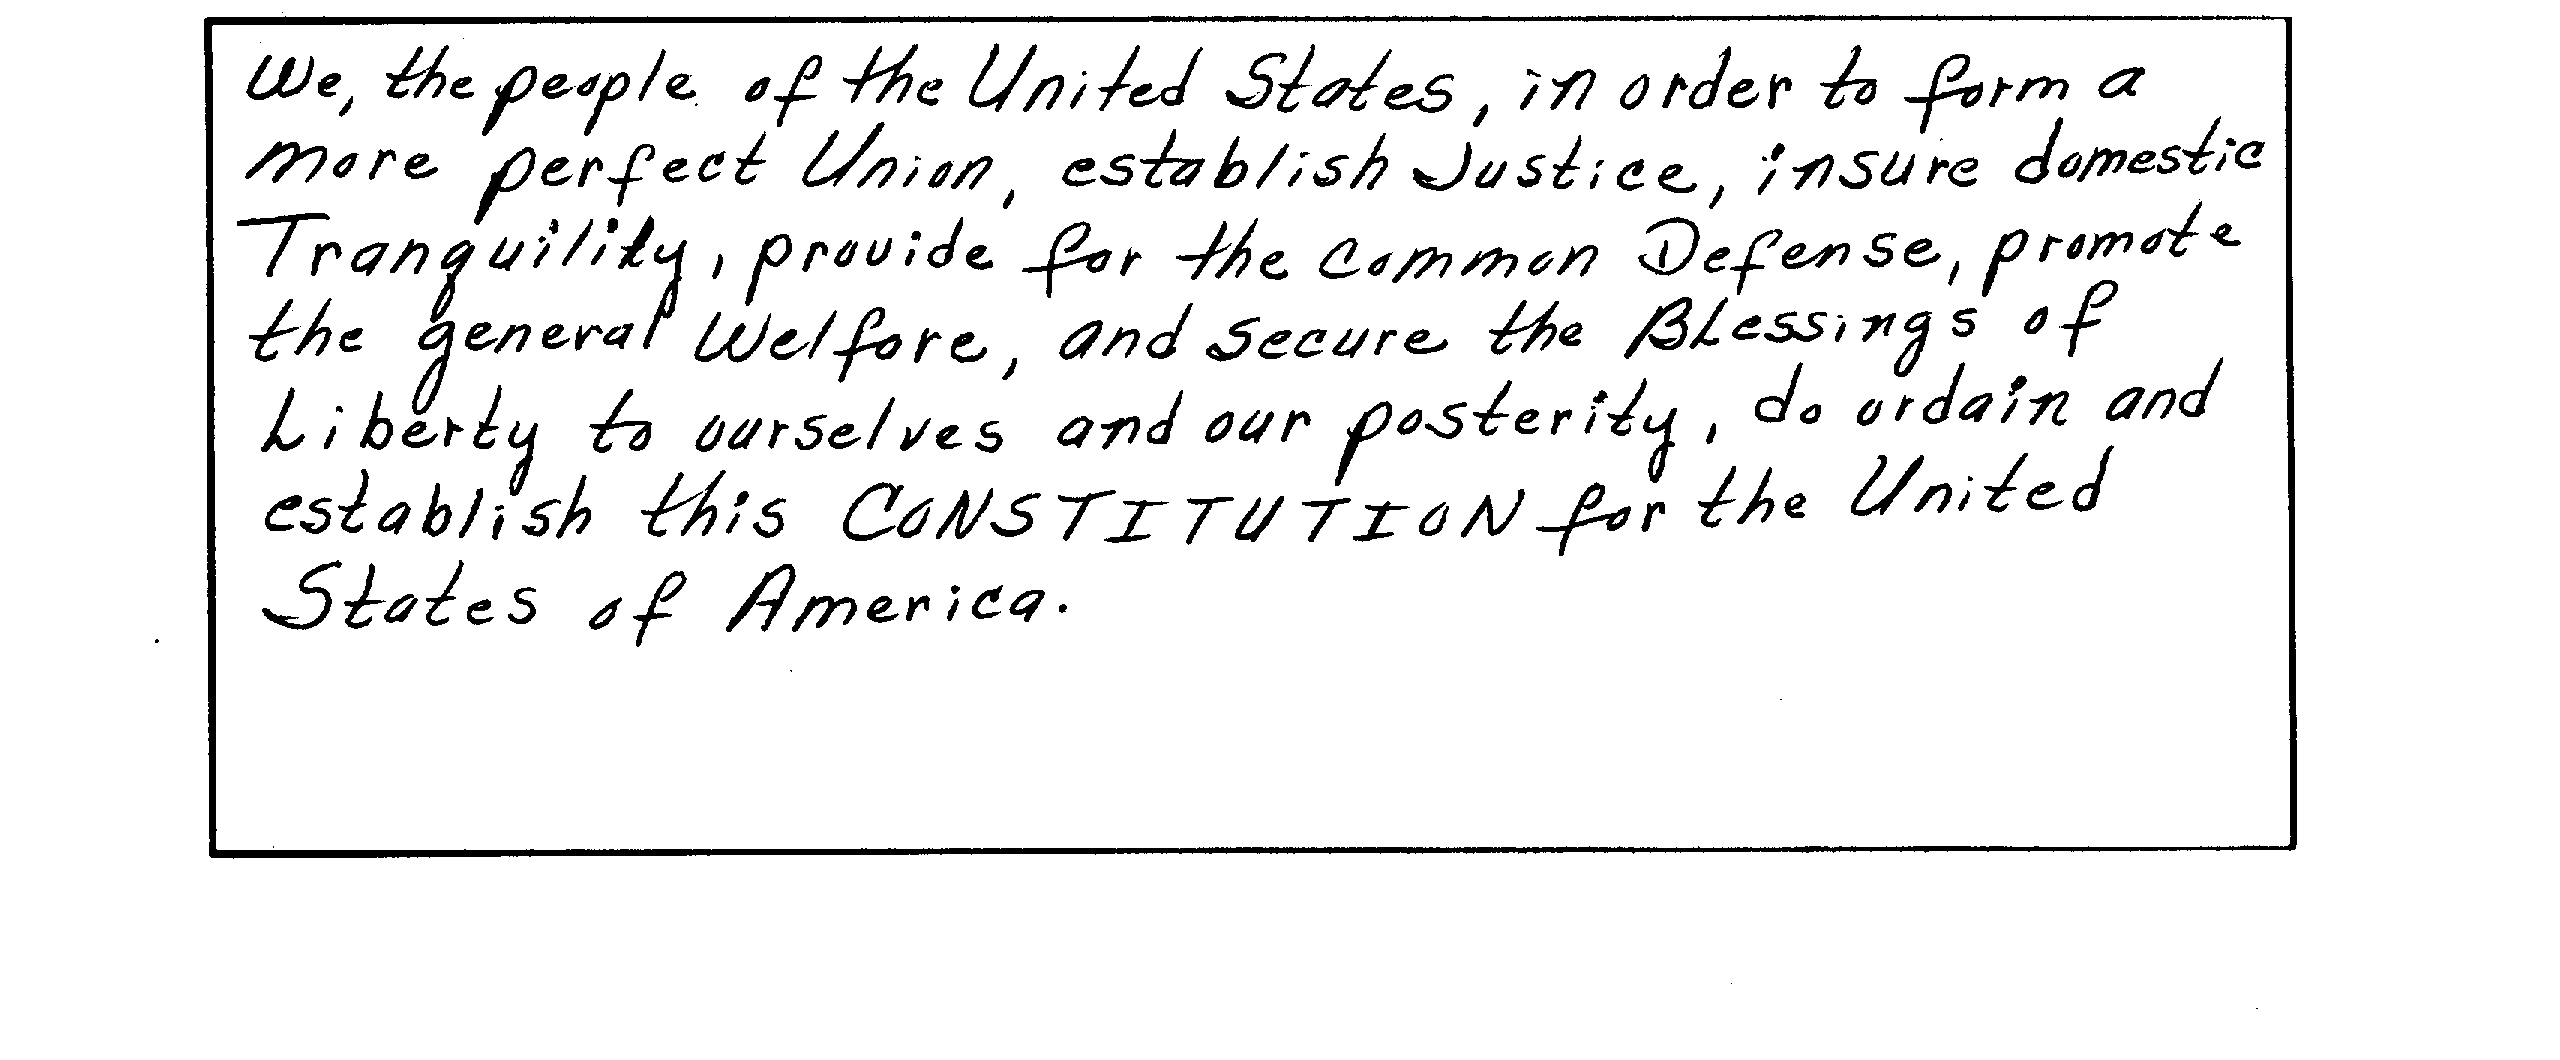 We, the people of the United States, in order to form a
more perfect Union, establish Justice, insure domestic
Tranquility, provide for the common Defense, promote
the general Welfare, and secure the BLessings of
Liberty to ourselves and our posterity, do ordain and
establish this CONSTITUTION for the United
States of America.